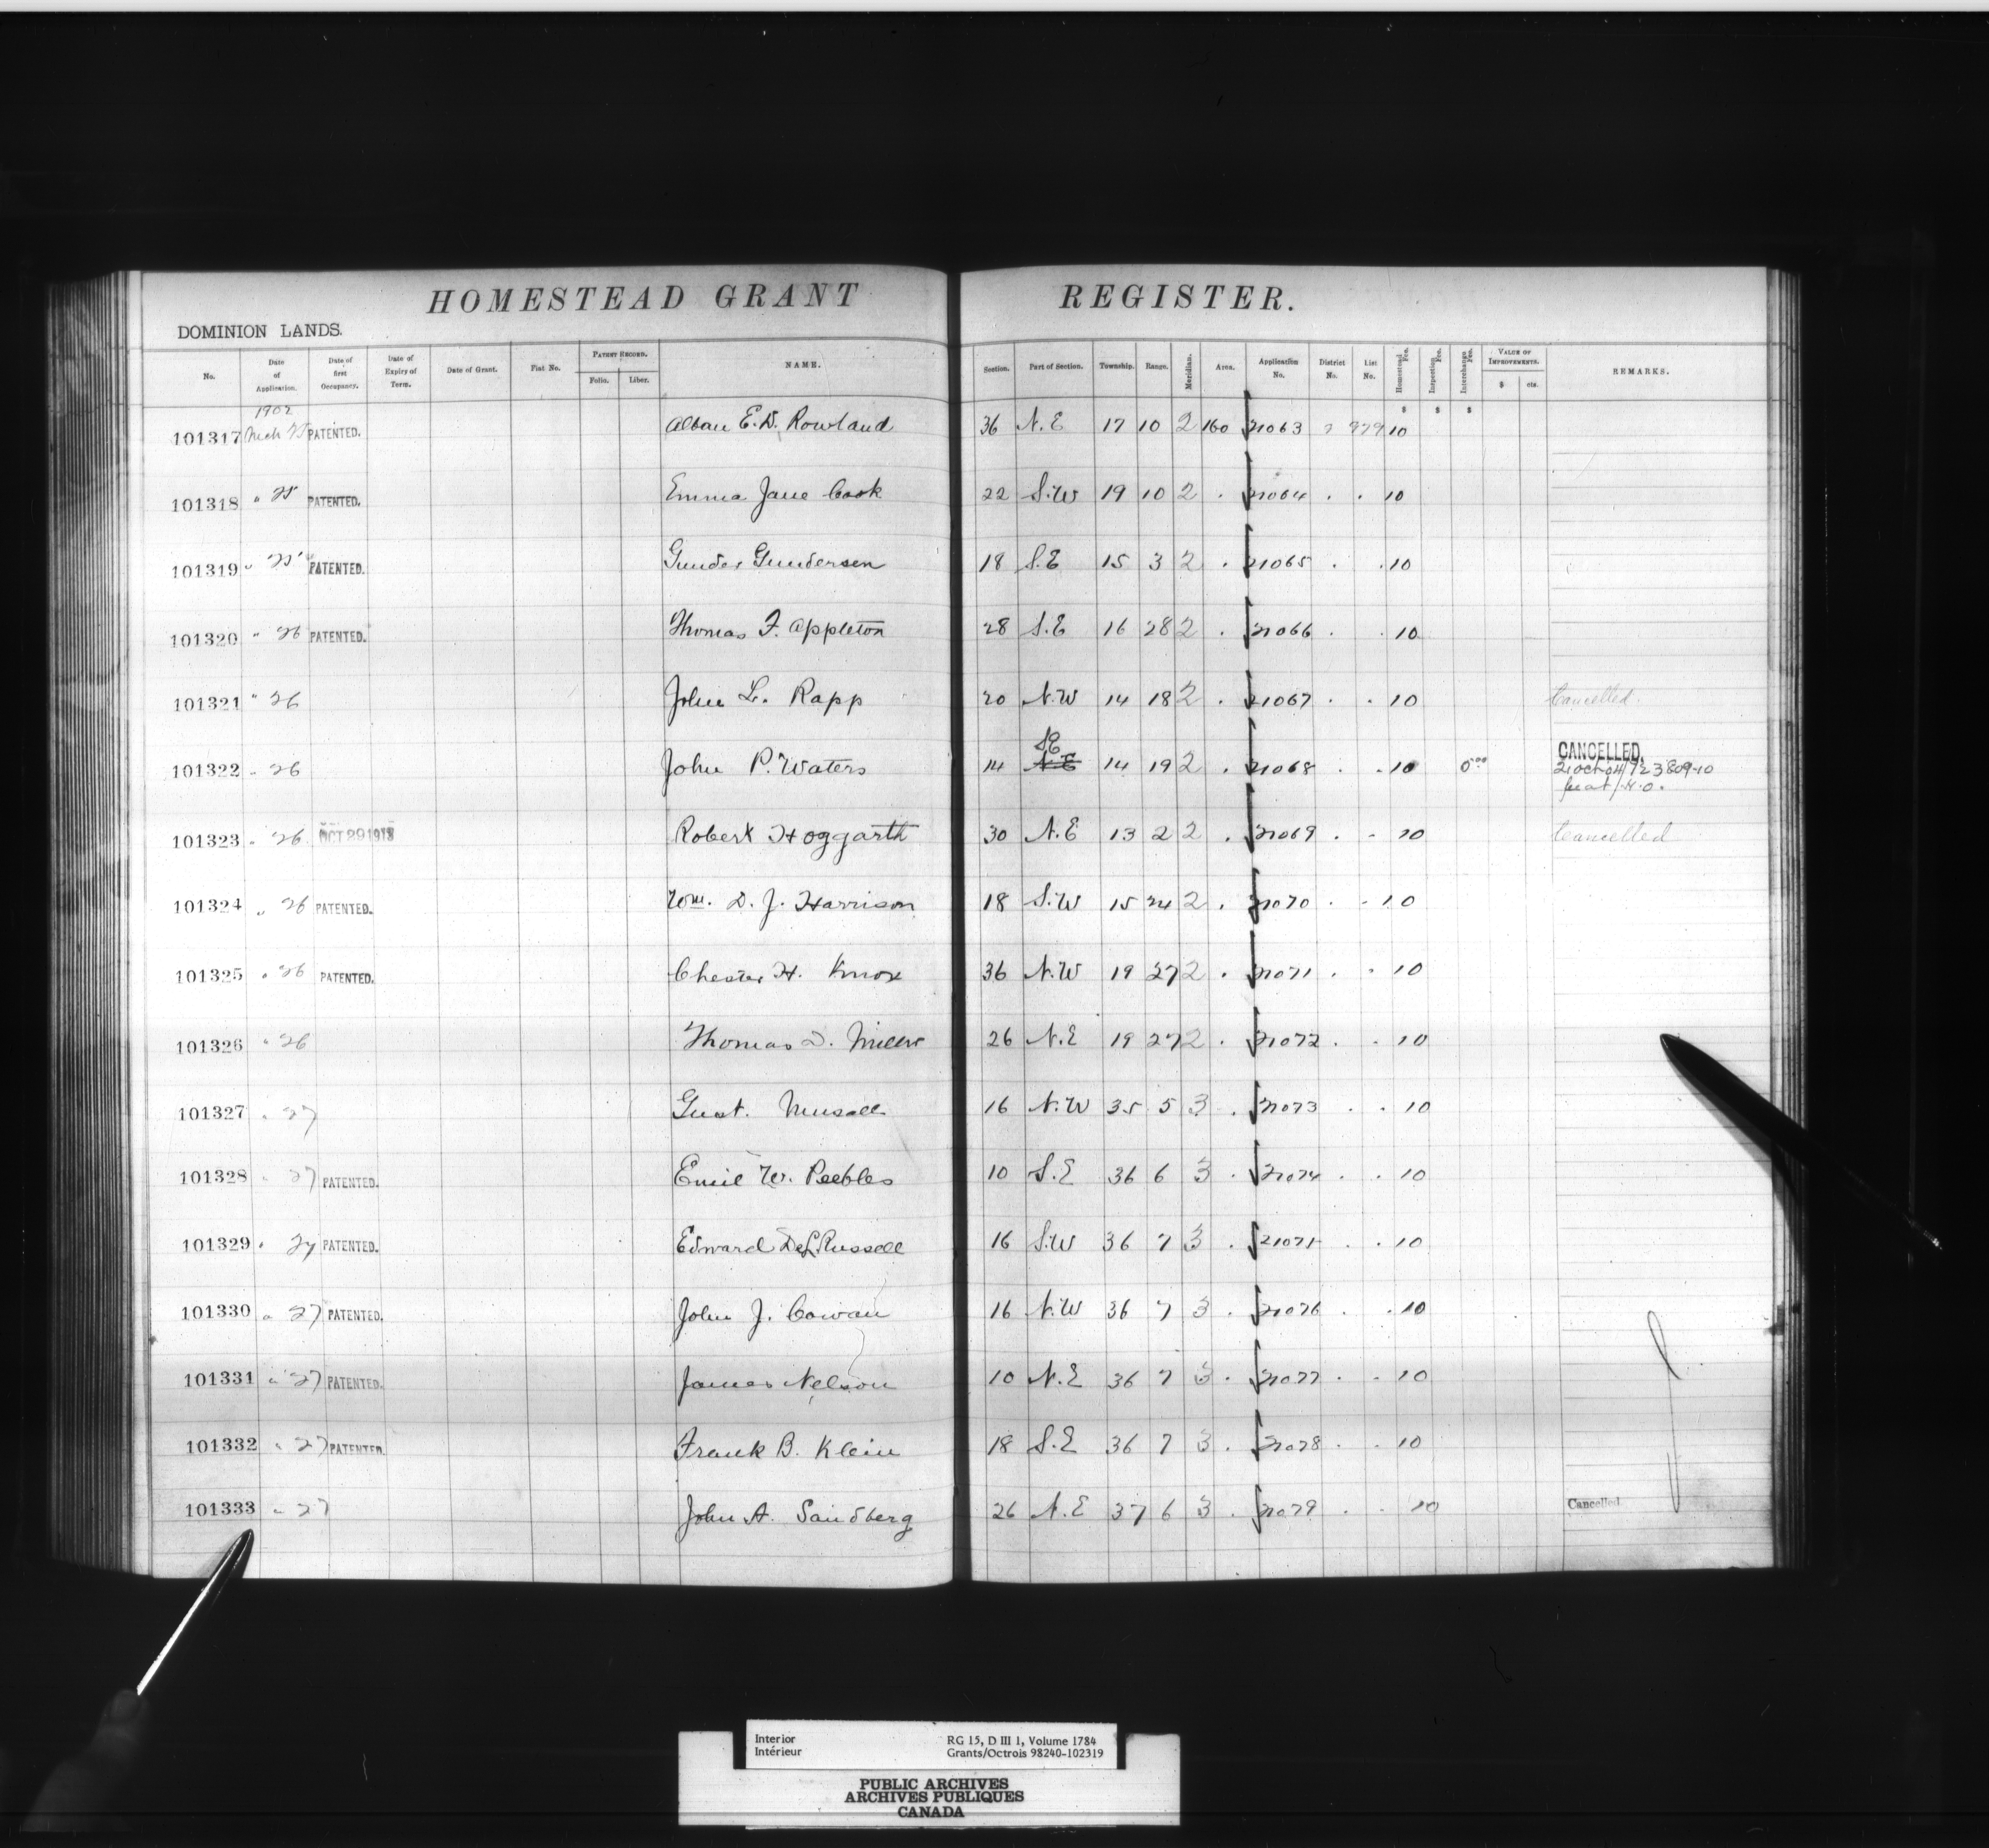 HOMESTEAD GRANT REGISTER.
DOMINION LANDS.
No. Date of Application. Date of first Occupancy. Date of Expiry of Term. Date of Grant. Fiat No. PATENT RECORD. Folio. Liber. NAME. Section. Part of Section. Township. Range. Meridian. Area. Application No. District No. List No. Homestead Fee. Inspection Fee. Interchange Fee. VALUE OF IMPROVEMENTS. $ cts. REMARKS.
1902 $ $ $
101317 Mch 25 PATENTED. Alban E. D. Rowland 36 N.E 17 10 2 160 21063 2 979 10
101318 " 25 PATENTED. Emma Jane Cook 22 S.W 19 10 2 . 21064 . . 10
101319 " 25 PATENTED. Gunder Gundersen 18 S.E 15 3 2 . 21065 . . 10
101320 " 26 PATENTED. Thomas F. Appleton 28 S.E 16 28 2 . 21066 . . 10
101321 " 26 John L. Rapp 20 N.W 14 18 2 . 21067 . . 10 Cancelled.
101322 " 26 John P. Waters 14 SE N.E 14 19 2 . 21068 . . 10 5 00 CANCELLED.
21 Oct 04/723809-10
101323 " 26 OCT 29 1918 Robert Hoggarth 30 N.E 13 2 2 . 21069 . . 10 Cancelled
101324 " 26 PATENTED. Wm. D. J. Harrison 18 S.W 15 24 2 . 21070 . . 10
101325 " 26 PATENTED. Chester H. Knox 36 N.W 19 27 2 . 21071 . . 10
101326 " 26 Thomas D. Miller 26 N.E 19 27 2 . 21072 . . 10
101327 " 27 Gust. Musall 16 N.W 35 5 3 . 21073 . . 10
101328 " 27 PATENTED. Emil W. Peebles 10 S.E 36 6 3 . 21074 . . 10
101329 " 27 PATENTED. Edward DeL Russell 16 S.W 36 7 3 . 21075 . . 10
101330 " 27 PATENTED. John J. Cowan 16 N.W 36 7 3 . 21076 . . 10
101331 " 27 PATENTED. James Nelson 10 N.E 36 7 3 . 21077 . . 10
101332 " 27 PATENTED. Frank B. Klein 18 S.E 36 7 3 . 21078 . . 10
101333 " 27 John A. Sandberg 26 N.E 37 6 3 . 21079 . . 10 Cancelled
Interior RG 15, D III 1, Volume 1784
Intérieur Grants/Octrois 98240-102319
PUBLIC ARCHIVES
ARCHIVES PUBLIQUES
CANADA